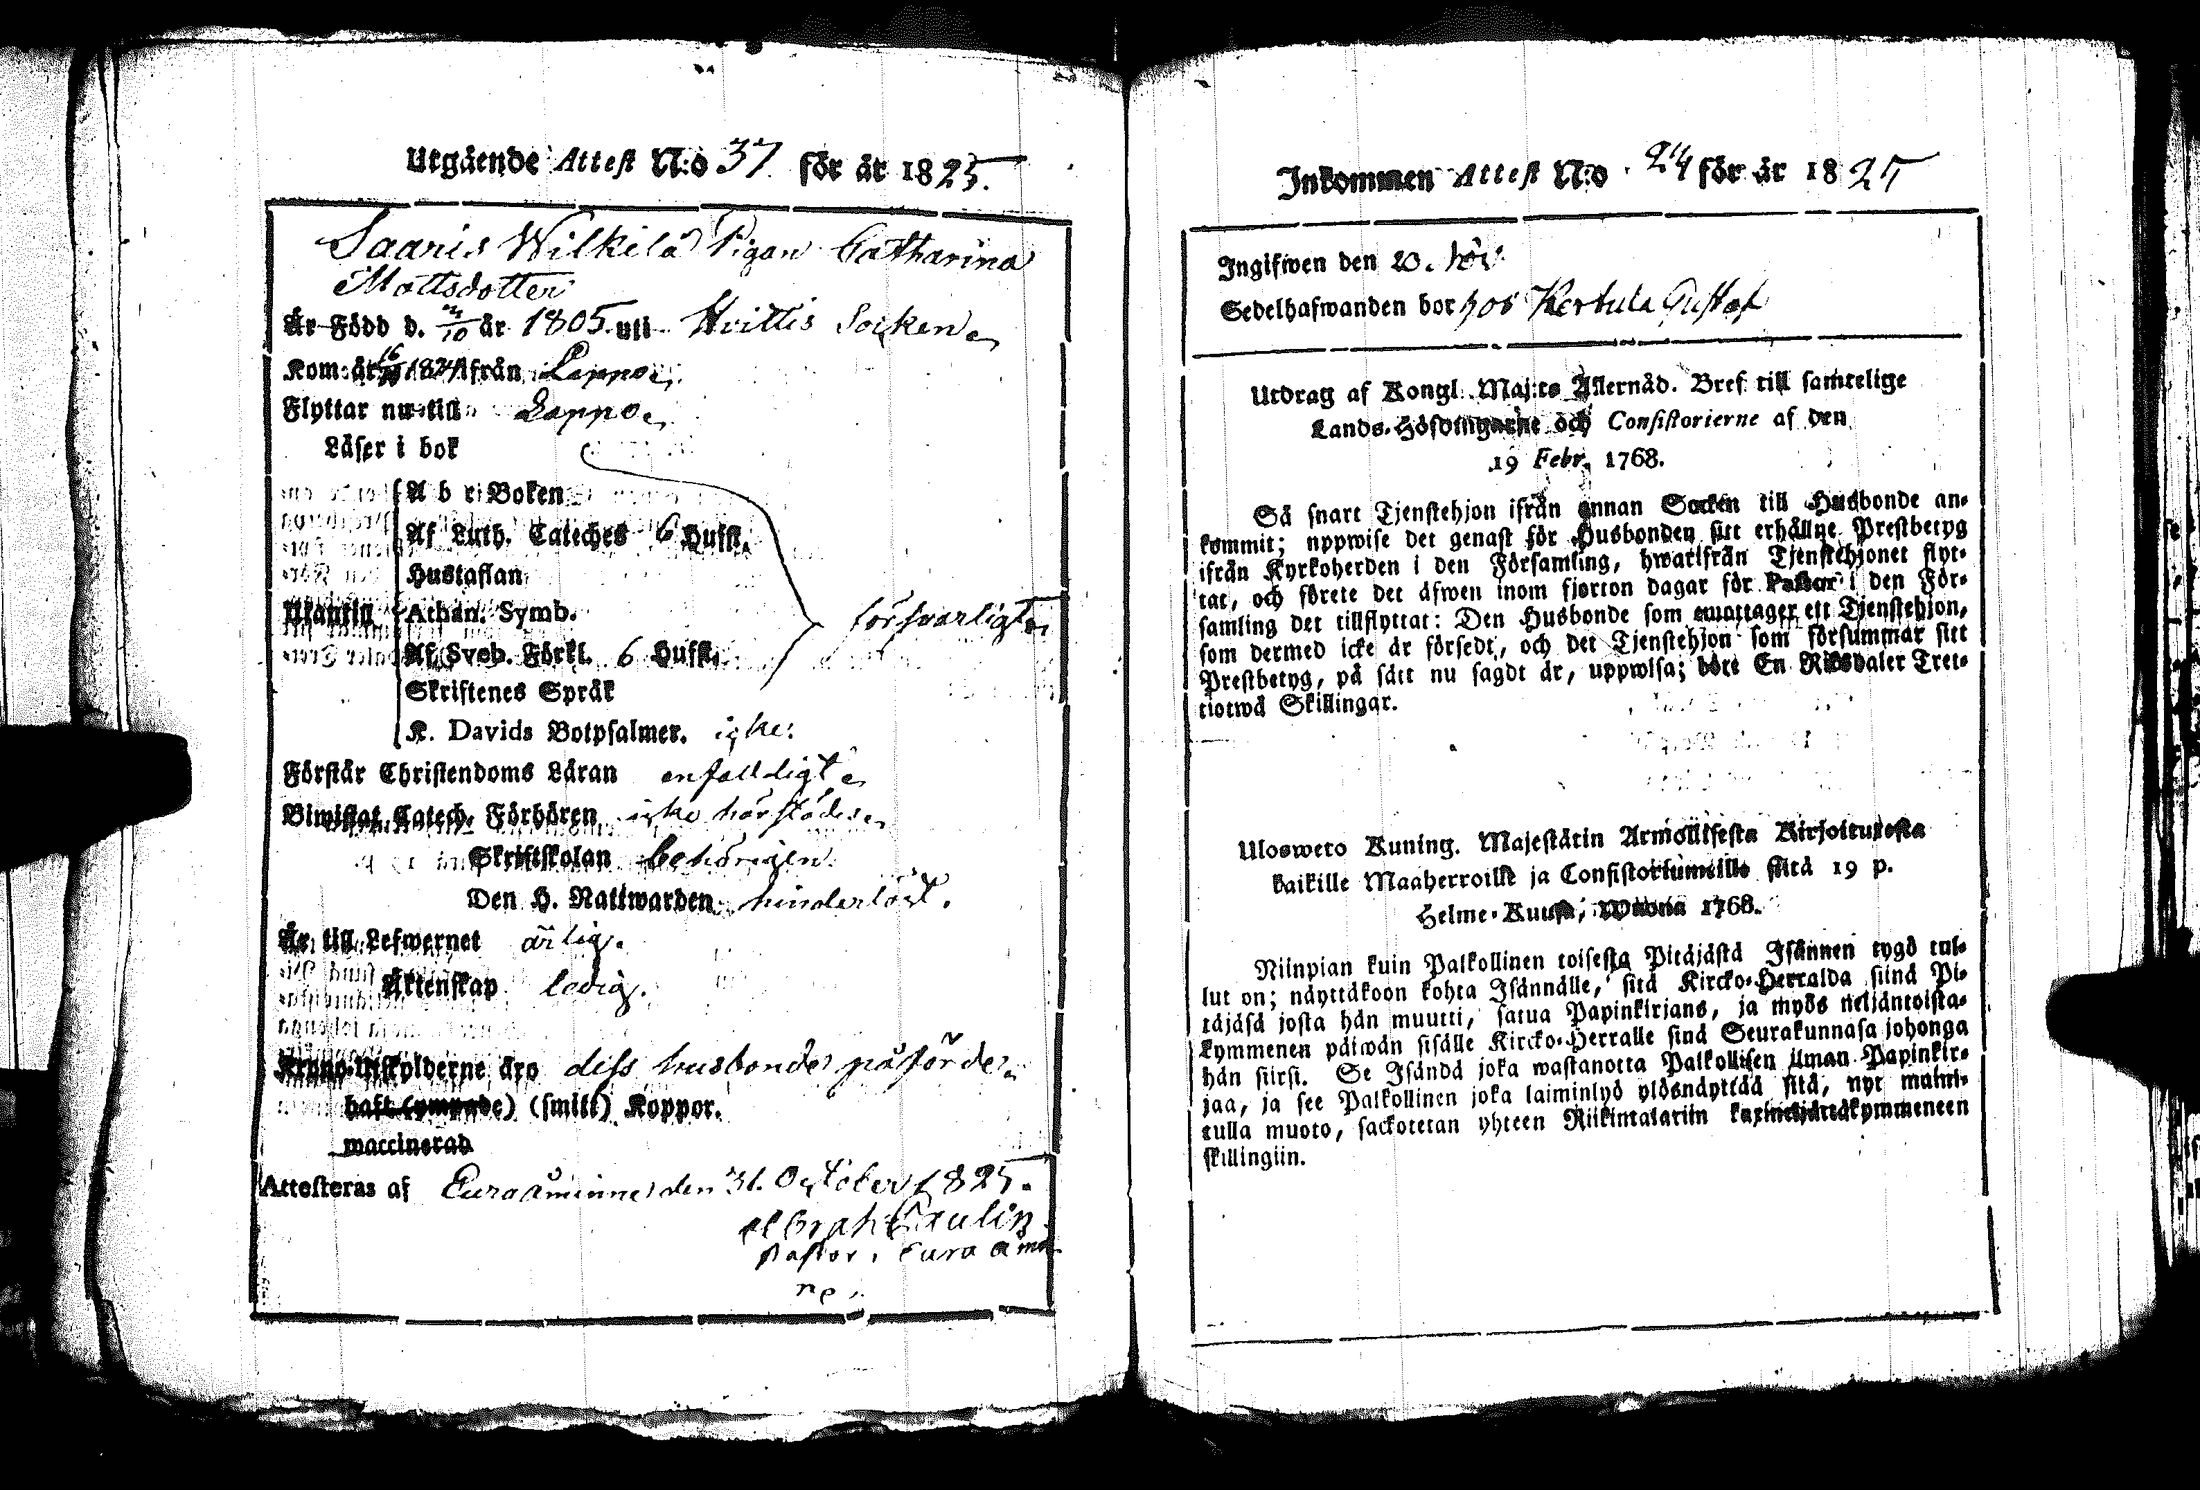 Utgående Attest N:o 37 för år 1825.
Saaris Wilkilä Pigan Catharina
Mattsdotter
Är Född d. /10 år 1805 uti Hvittis Socken
Kom: år 16/ 1824 ifrån Lappo
Flyttar nu till Lappo
Läser i bok
A b c Boken
Af Luth. Cateches 6 Hufst.
Hustaflan
Utantill Athan. Symb. försvarligt
Af Sveb. Förkl. 6 Hufst.
Skriftenes Språk
K. Davids Botpsalmer. icke.
Förstår Christendoms Läran enfaldigt
Biwistat Catech. Förhören icke härstädes
Skriftskolan behörigen
Den H. Nattwarden hinderlöst.
Är till Lefwernet ärlig.
Äktenskap ledig.
Krono-Utskylderne äro dess husbonde påförde
haft (ympade) (smitt) Koppor.
waccinerad
Attesteras af Euraåminne den 31. October 1825.
Paulin
Pastor i Euraåmin
ne.
Inkommen Attest N:o 24 för år 1825
Ingifwen den 20. Nov.
Sedelhafwanden bor hos Kertula Gustaf
Utdrag af Kongl. Maj:ts Allernåd. Bref till samtelige
Lands-Höfdingarne och Consistorierne af den
19 Febr. 1768.
Så snart Tjenstehjon ifrån annan Socken till Husbonde an-
kommit; uppwise det genast för Husbonden sitt erhållne Prestbetyg
ifrån Kyrkoherden i den Församling, hwarifrån Tjenstehjonet flyt-
tat, och förete det äfwen inom fjorton dagar för Pastor i den För-
samling det tillflyttat: Den Husbonde som emottager ett Tjenstehjon,
som dermed icke är försedt, och det Tjenstehjon som försummar sitt
Prestbetyg, på sätt nu sagdt är, uppwisa; böte En Riksdaler Tret-
tiotwå Skillingar.
Ulosweto Kuning. Majestätin Armollisesta Kirjoituxesta
kaikille Maaherroille ja Consistoriumeille siitä 19 p.
Helme-Kuusa, Wuonna 1768.
Niinpian kuin Palkollinen toisesta Pitäjästä Isännen tygö tul-
lut on; näyttäkoon kohta Isännälle, sitä Kircko-Herralda siinä Pi-
täjäsä josta hän muutti, satua Papinkirjans, ja myös neljäntoista-
kymmenen päiwän sisälle Kircko-Herralle siinä Seurakunnasa johonga
hän siirsi. Se Isändä joka wastanotta Palkollisen ilman Papinkir-
jaa, ja see Palkollinen joka laiminlyö ylösnäyttää sitä, nyt maini-
tulla muoto, sackotetan yhteen Riikintalariin kaxineljättäkymmeneen
skillingiin.